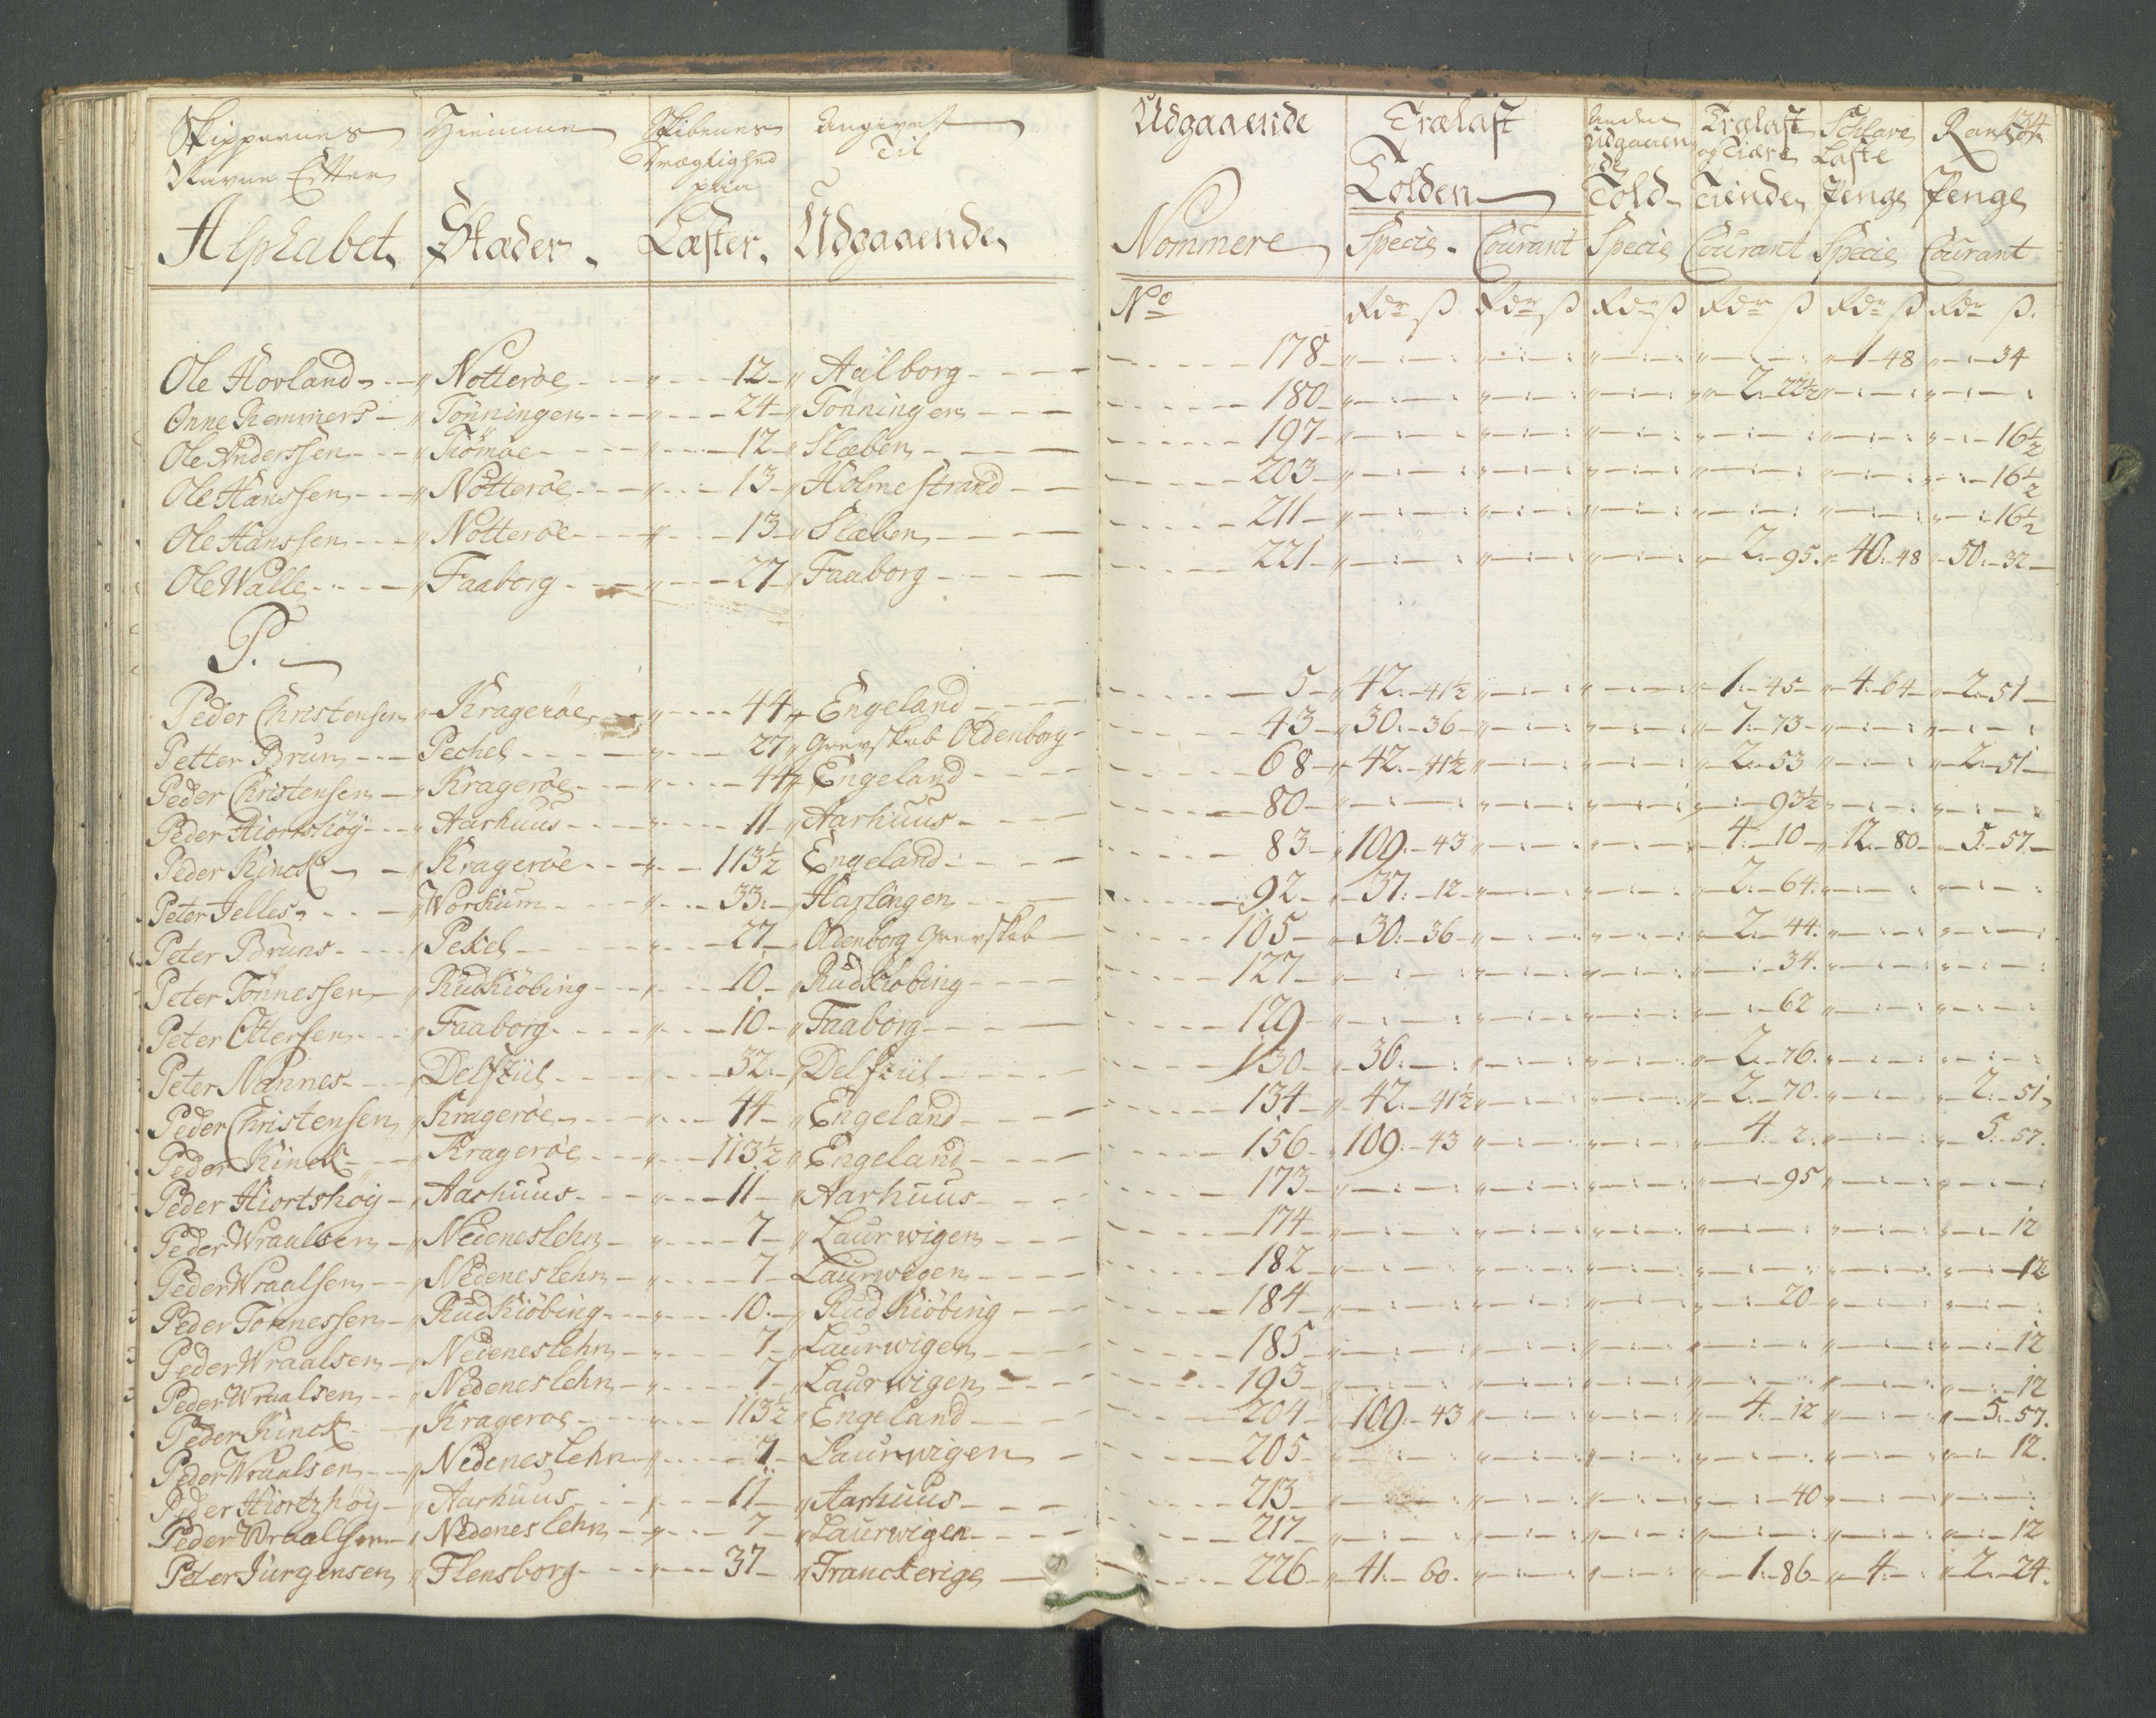 134
Skippernes Hiemme Skibenes Angivet Udgaaende Trælast Anden Trælast Schlave Rantzon
Navne Efter Drægtighed Til Udgaaen og Tiære Laste
paa Tolden de
Alphabet Stæder Læster Udgaaende Nommere Told Tiende Penge Penge
Specie Courant Specie Courant Specie Courant
No Rdr ß Rdr ß Rdr ß Rdr ß Rdr ß Rdr ß
Ole Hovland Nötteröe 12 Aalborg 178 1 48 34
Onne Remmers Tönningen 24 Tönningen 180 2 22½
Ole Anderssen Tiömöe 12 Slæben 197 16½
Ole Hanssen Nötteröe 13 Holmestrand 203 16½
Ole Hanssen Nötteröe 13 Slæben 211 16½
Ole Walle Faaborg 27 Faaborg 221 2 95 40 48 50 32
P.
Peder Christensen Krageröe 44 Engeland 5 42 41½ 1 45 4 64 2 51
Petter Brun Pechel 27 Grevskab Oldenborg 43 30 36 1 73
Peder Christensen Krageröe 44 Engeland 68 42 41½ 2 53 2 51
Peder Hiortshöy Aarhuus 11 Aarhuus 80 93½
Peder Kinck Krageröe 113½ Engeland 83 109 43 4 10 12 80 5 57
Peter Jelles Workum 33 Harlingen 92 37 12 2 64
Peter Bruns Pekel 27 Oldenborg Grevskab 105 30 36 2 44
Peter Tönnessen Rudkiöbing 10 Rudkiöbing 127 34
Peter Ottersen Faaborg 10 Faaborg 129 62
Peter Nannes Delfziil 32 Delfziil 130 36 2 76
Peder Christensen Krageröe 44 Engeland 134 42 41½ 2 70 2 51
Peder Kinck Krageröe 113½ Engeland 156 109 43 4 2 5 57
Peder Hiortshöy Aarhuus 11 Aarhuus 173 95
Peder Wraalsen Nedeneslehn 7 Laurwigen 174 12
Peder Wraalsen Nedeneslehn 7 Laurwegen 182 12
Peder Tönnessen Rudkiöbing 10 Rudkiöbing 184 20
Peder Wraalsen Nedeneslehn 7 Laurwigen 185 12
Peder Wraalsen Nedeneslehn 7 Laurwigen 193 12
Peder Kinck Krageröe 113½ Engeland 204 109 43 4 12 5 57
Peder Wraalsen Nedeneslehn 7 Laurwigen 205 12
Peder Hiortzhöy Aarhuus 11 Aarhuus 213 40
Peder Wraalsen Nedeneslehn 7 Laurwigen 217 12
Peter Jürgensen Flensborg 37 Franckerige 226 41 60 1 86 4 2 24